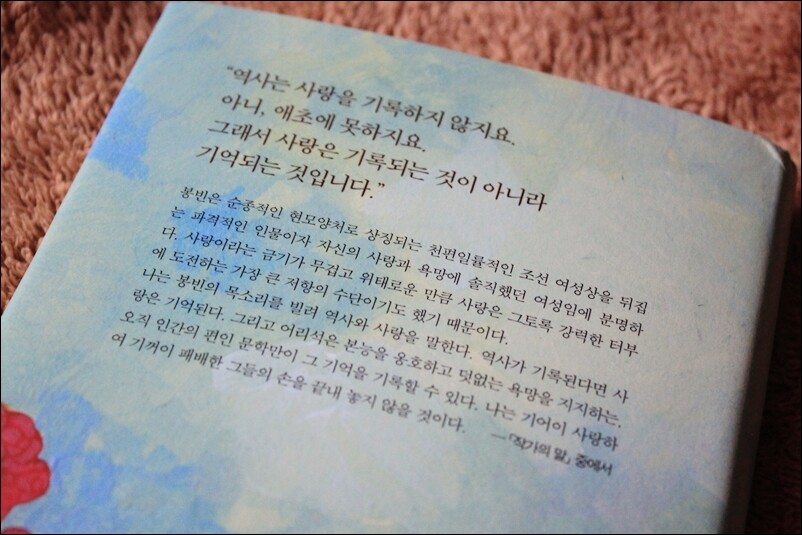 “역사는 사랑을 기록하지 않지요.
아니, 애초에 못하지요.
그래서 사랑은 기록되는 것이 아니라
기억되는 것입니다.”
봉빈은 순종적인 현모양처로 상징되는 천편일률적인 조선 여성상을 뒤집
는 파격적인 인물이자 자신의 사랑과 욕망에 솔직했던 여성임에 분명하
다. 사랑이라는 금기가 무겁고 위태로운 만큼 사랑은 그토록 강력한 터부
에 도전하는 가장 큰 저항의 수단이기도 했기 때문이다.
나는 봉빈의 목소리를 빌려 역사와 사랑을 말한다. 역사가 기록된다면 사
랑은 기억된다. 그리고 어리석은 본능을 옹호하고 덧없는 욕망을 지지하는,
오직 인간의 편인 문학만이 그 기억을 기록할 수 있다. 나는 기어이 사랑하
여 기꺼이 패배한 그들의 손을 끝내 놓지 않을 것이다.
—「작가의 말」 중에서